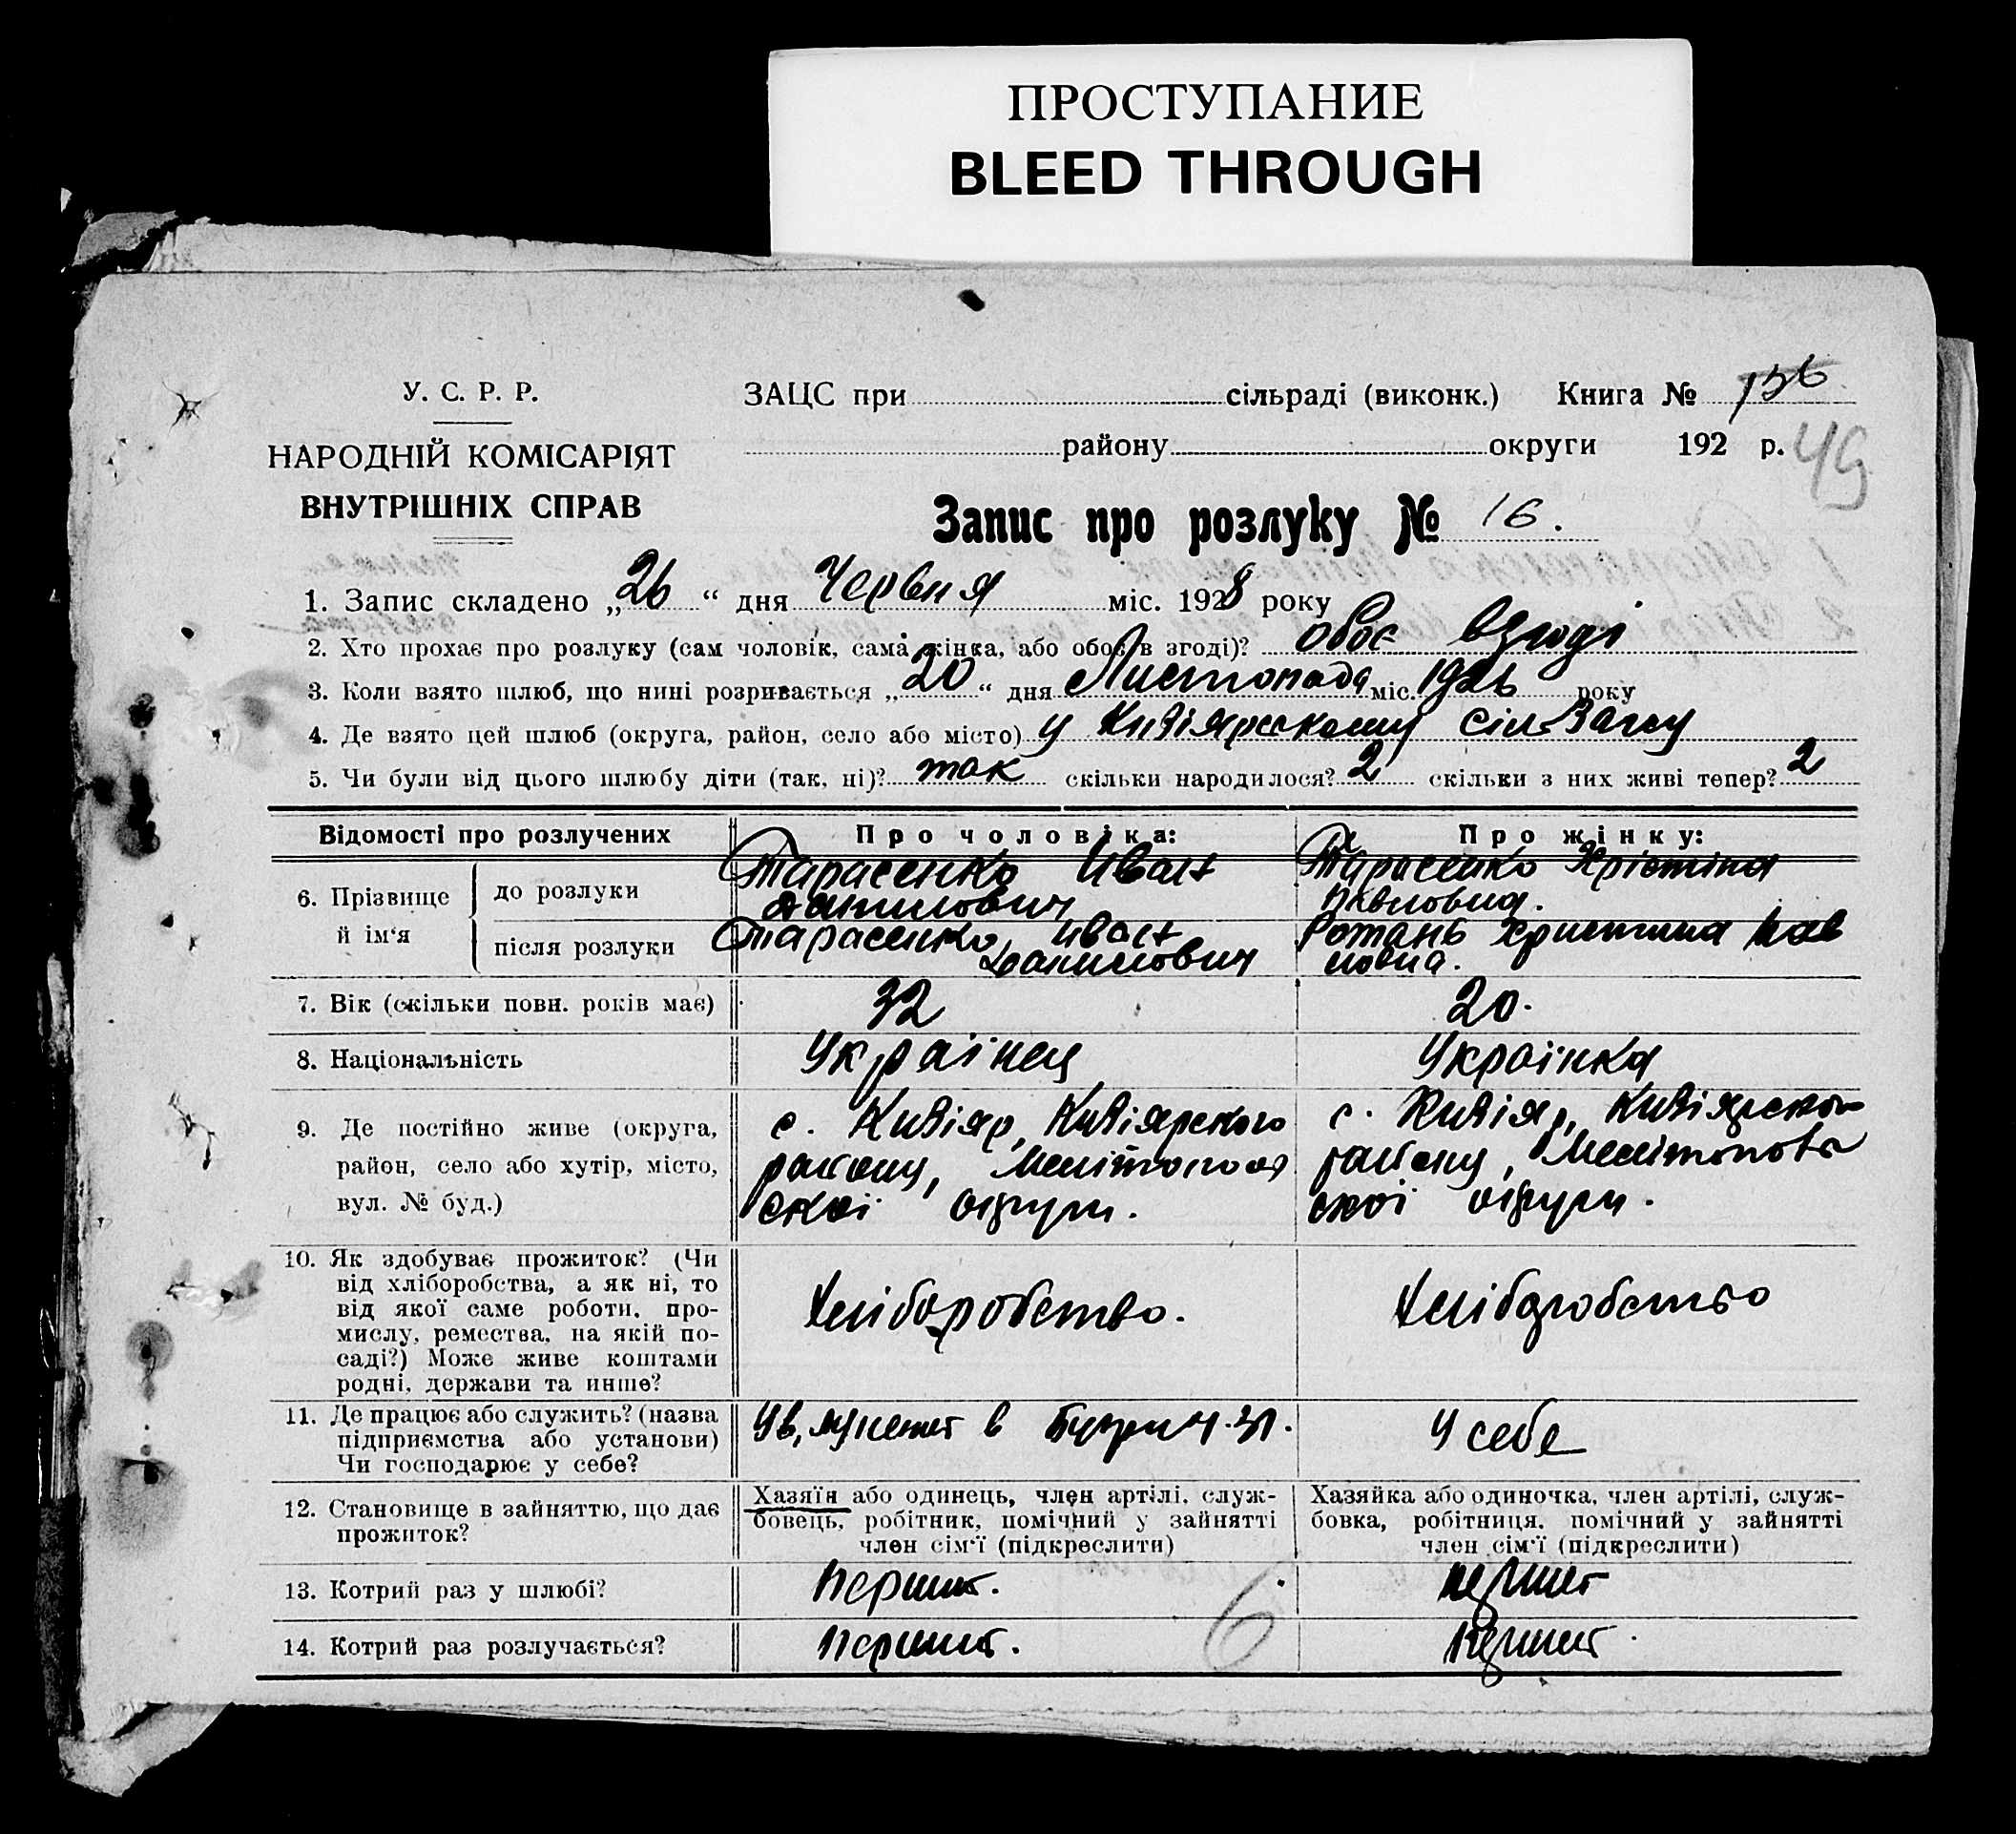 ПРОСТУПАНИЕ
BLEED THROUGH
У. С. Р. Р.
НАРОДНІЙ КОМІСАРІЯТ
ВНУТРІШНІХ СПРАВ
ЗАЦС при сільраді (виконк.) Книга № 136
району округи 192 р. 49
Запис про розлуку № 16.
1. Запис складено „26“ дня Червня міс. 1928 року
2. Хто прохає про розлуку (сам чоловік, сама жінка, або обоє в згоді)? обоє взгоді
3. Коли взято шлюб, що нині розривається „20“ дня Листопада міс. 1926 року
4. Де взято цей шлюб (округа, район, село або місто) у Кизіярскому сіл-Загсу
5. Чи були від цього шлюбу діти (так, ні)? так скільки народилося? 2 скільки з них живі тепер? 2
Відомості про розлучених Про чоловіка: Про жінку:
6. Прізвище й ім'я
до розлуки
Тарасенко Иван
Данилович
Тарасенко Хрістіна
Павловна.
після розлуки
Тарасенко Иван
Данилович
Ротань Христина Пав
ловна.
7. Вік (скільки повн. років має) 32 20.
8. Національність Українец Українка
9. Де постійно живе (округа,
район, село або хутір, місто,
вул. № буд.)
с. Кизіяр, Кизіярского
району, Мелітополь
скої округи.
с. Кизіяр, Кизіярского
району, Мелітополь
скої округи.
10. Як здобуває прожиток? (Чи
від хліборобства, а як ні, то
від якої саме роботи, про-
мислу, ремества, на якій по-
саді?) Може живе коштами
родні, держави та инше?
Хліборобство.
Хліборобство
11. Де працює або служить? (назва
підприємства або установи)
Чи господарює у себе?
в
У себе
12. Становище в зайняттю, що дає
прожиток?
Хазяїн або одинець, член артілі, служ-
бовець, робітник, помічний у зайнятті
член сім'ї (підкреслити)
Хазяйка або одиночка, член артілі, служ-
бовка, робітниця, помічний у зайнятті
член сім'ї (підкреслити)
13. Котрий раз у шлюбі?
14. Котрий раз розлучається?
6